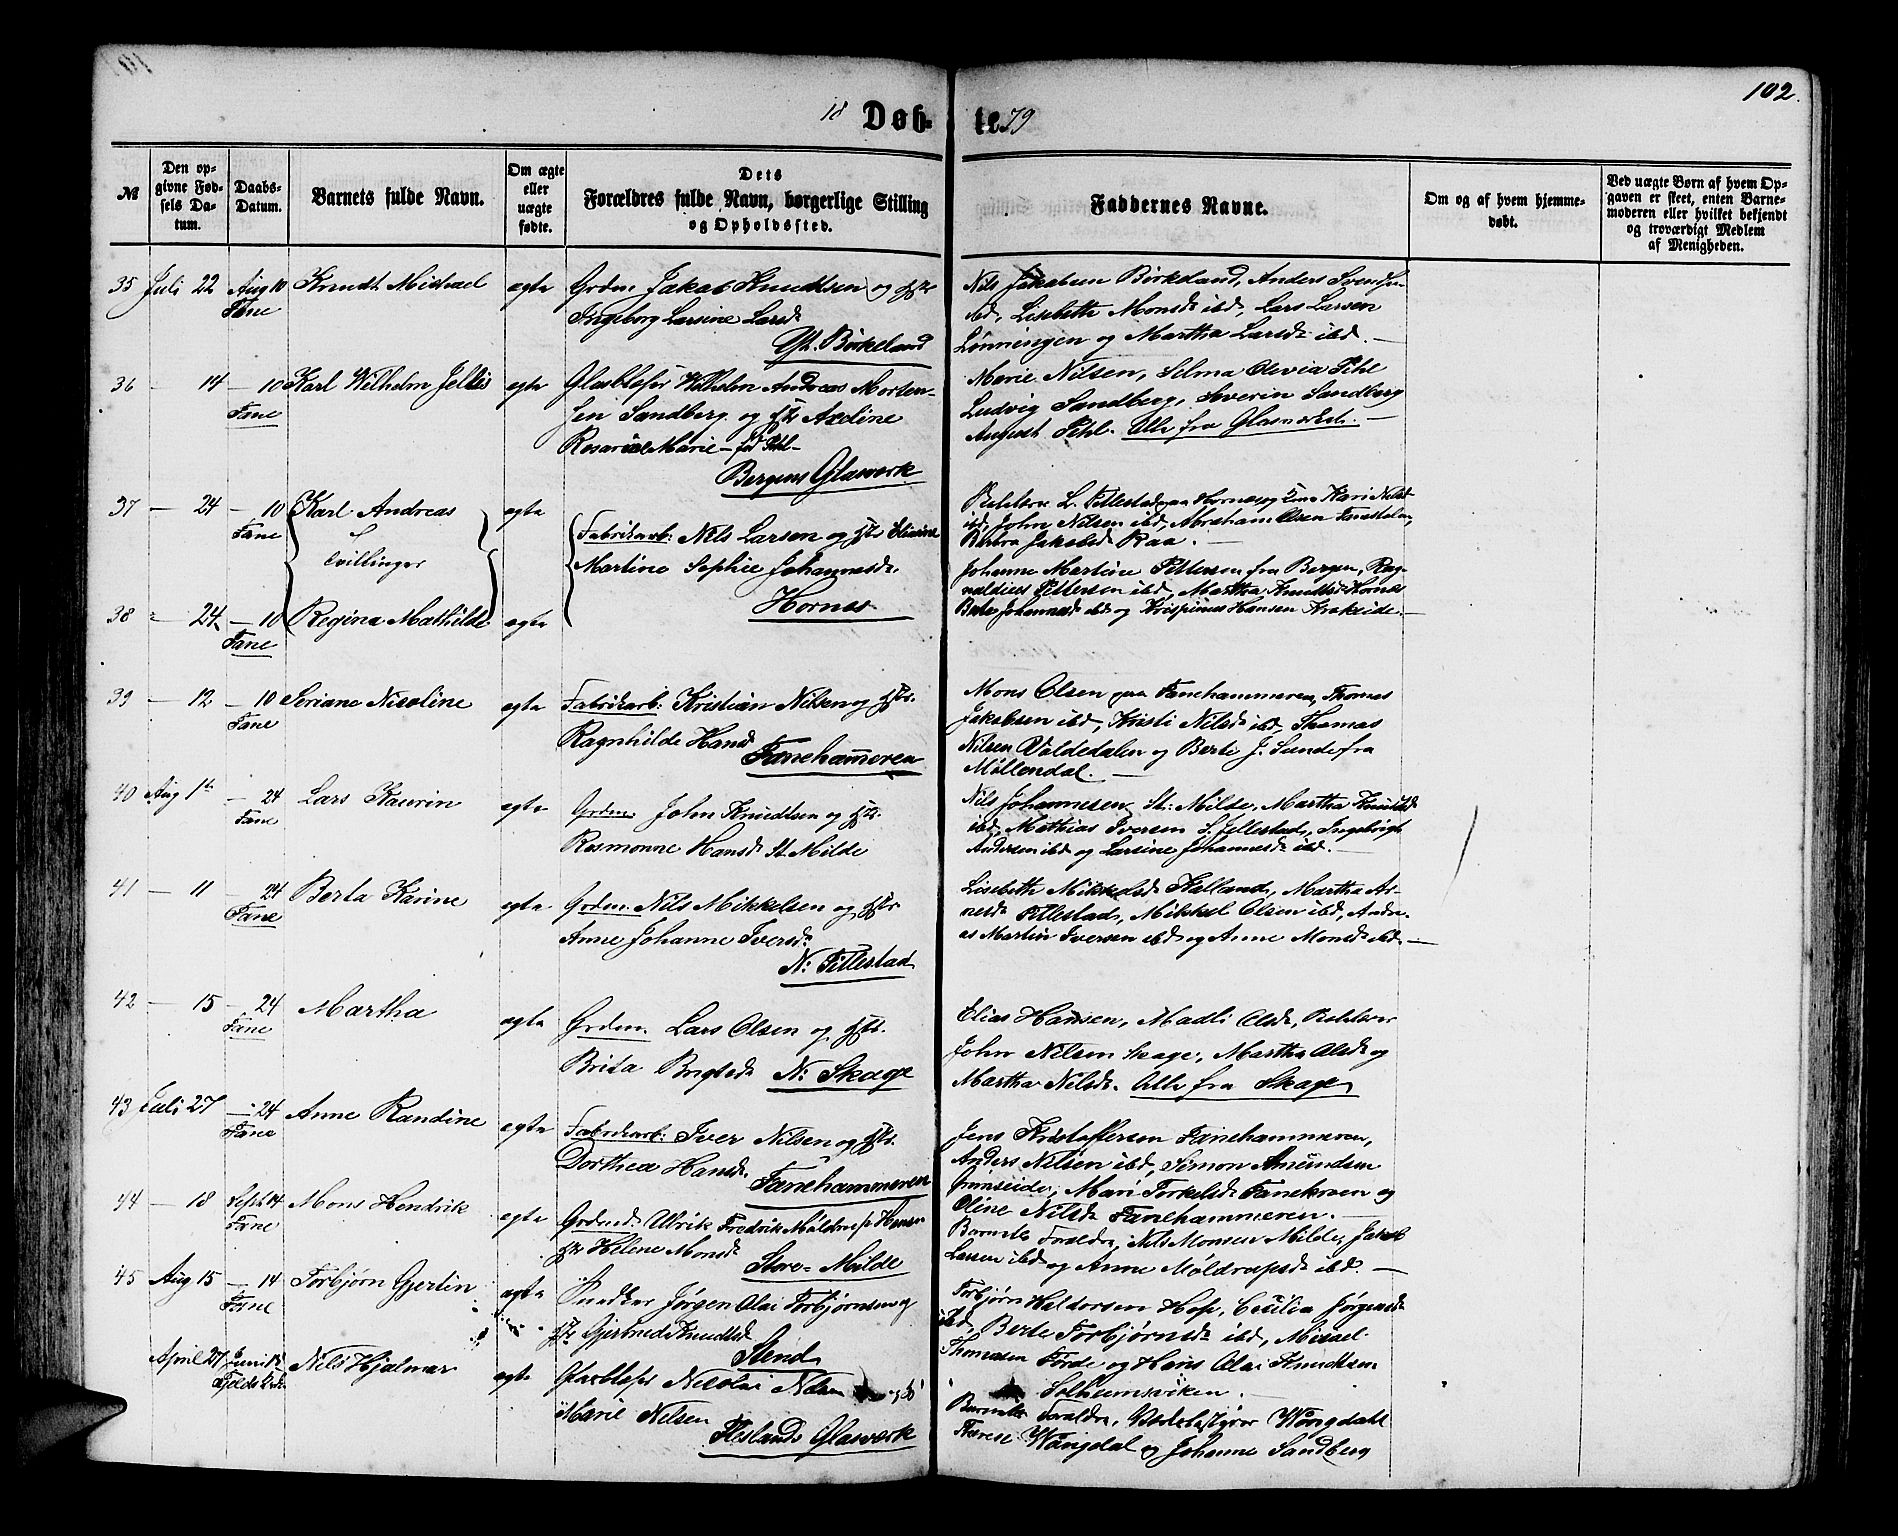 102.
18 Døb- te. 79
№
Den op-
givne Fød-
sels Da-
tum.
Daabs-
Datum.
Barnets fulde Navn.
Om ægte
eller
uægte
fødte.
Dets
Forældres fulde Navn, borgerlige Stilling
og Opholdssted.
Faddernes Navne.
Om og af hvem hjemme-
døbt.
Ved uægte Børn af hvem Op-
gaven er skeet, enten Barne-
moderen eller hvilket bekjendt
og troværdigt Medlem
af Menigheden.
35 Juli 22 Aug 10 Knudt Michael ægte Grdm. Jakob Knudtsen og Hstr
Fane Ingeborg Larsine Larsd.
Yt. Birkeland
Nils Jakobsen Birkeland, Anders Svendsen
ibd, Lisebeth Monsd ibd, Lars Larsen
Lønningen og Martha Larsd. ibd. —
36 — 14 — 10 Karl Wilhelm Jelles egte Glasblaser Wilhelm Andreas Morten-
Fane sen Sandberg og Hstr Axeline
Marie — fød Pihl —
Bergens Glasværk
Marie Nilsen, Selma Olevia Pihl
Ludvig Sandberg, Severin Sandberg
August Pihl. Alle fra Glasværket. —
37 — 24 — 10 Karl Andreas egte
Fane
tvillinger
Fabrikarb: Nils Larsen og Hstr
Martine Sophie Johannesd.
Hornes
ibd, John Nilsen ibd, Abraham Olsen Fanedalen,
Barbra Jakobsd Raa. —
38 — 24 — 10 Regina Mathilde egte
Fane
Johanne Martine Pettersen fra Bergen, Rag-
Pettersen ibd, Martha Knudtsd Hornes
Berta Johannesd ibd og Krispinus Hansen Krokeide. —
39 — 12 — 10 Seriane Nicoline egte Fabrikarb: Kristian Nilsen og Hstr.
Fane Ragnhilde Hansd
Fanehammeren
Mons Olsen paa Fanehammeren, Thomas
Jakobsen ibd, Kristi Nilsd ibd, Thomas
Nilsen Valdedalen og Berte J. Sunde fra
Møllendal. —
40 Aug 1ste — 24 Lars Kaurin egte Grdm. John Knudtsen og Hstr.
Fane Rasmonne Hansd. St. Milde
Nils Johannesen St: Milde, Martha Knudtsd
ibd, Mathias Iversen S. Jellestad, Ingebrigt
Andersen ibd og Larsine Johannesd ibd. —
41 — 11 — 24 Berta Karine egte Grdm. Nils Mikkelsen og Hstr
Fane Anne Johanne Iversd.
N: Titlestad
Lisebeth Mikkelsd Kalland, Martha Ar-
nesd Titlestad, Mikkel Olsen ibd, Andre-
as Martin Iversen ibd og Anne Monsd ibd —
42 — 15 — 24 Martha egte Grdm. Lars Olsen og Hstr.
Fane Brita Brigtsd. N: Skage
Elias Hansen, Madli Olsd,
John Nilsen Skage, Martha Olsd og
Martha Nilsd. Alle fra Skage
43 Juli 27 — 24 Anne Randine egte Fabrikarb: Iver Nilsen og Hstr.
Fane Dorthea Hansd.
Fanehammeren
Jens Kristoffersen Fanehammeren,
Anders Nilsen ibd, Simon Amundsen
Grimseide, Mari Torkelsd Fanekroen og
Oline Nilsd. Fanehammeren. —
44 — 18 Sept. 14 Mons Hendrik egte Ulrik Fredrik Møldrup Hansen
Fane Hstr Helene Monsd
Store-Milde
Barnets Forældre, Nils Monsen Milde, Jakob
Larsen ibd og Anne Møldrupsd ibd. —
45 Aug 15 — 14 Torbjørn Gjertin egte Snedker Jørgen Olai Torbjørnsen og
Fane Hstr Gjertrud Knudtsd
Stend
Torbjørn Haldorsen Hop, Cecilia Jørgensd
ibd, Berte Torbjørnsd ibd, Mikael
Thomasen Førde og Hans Olai Knudtsen
Solheimsviken. —
April 27 Juni 15 Nels Hjalmar egte Glasblaser Nicolai Nilsen
Marie Nilsen
Fleslands Glasværk
Barnets Forældre, Værksbestyrer Wangdahl
Therese Wangdal og Johanne Sandberg